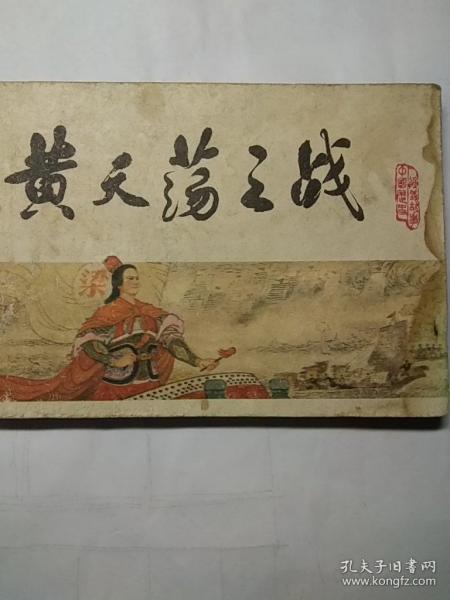 黄天荡之战
中國歷史
人物故事
梁
孔夫子旧书网
www.kongfz.com